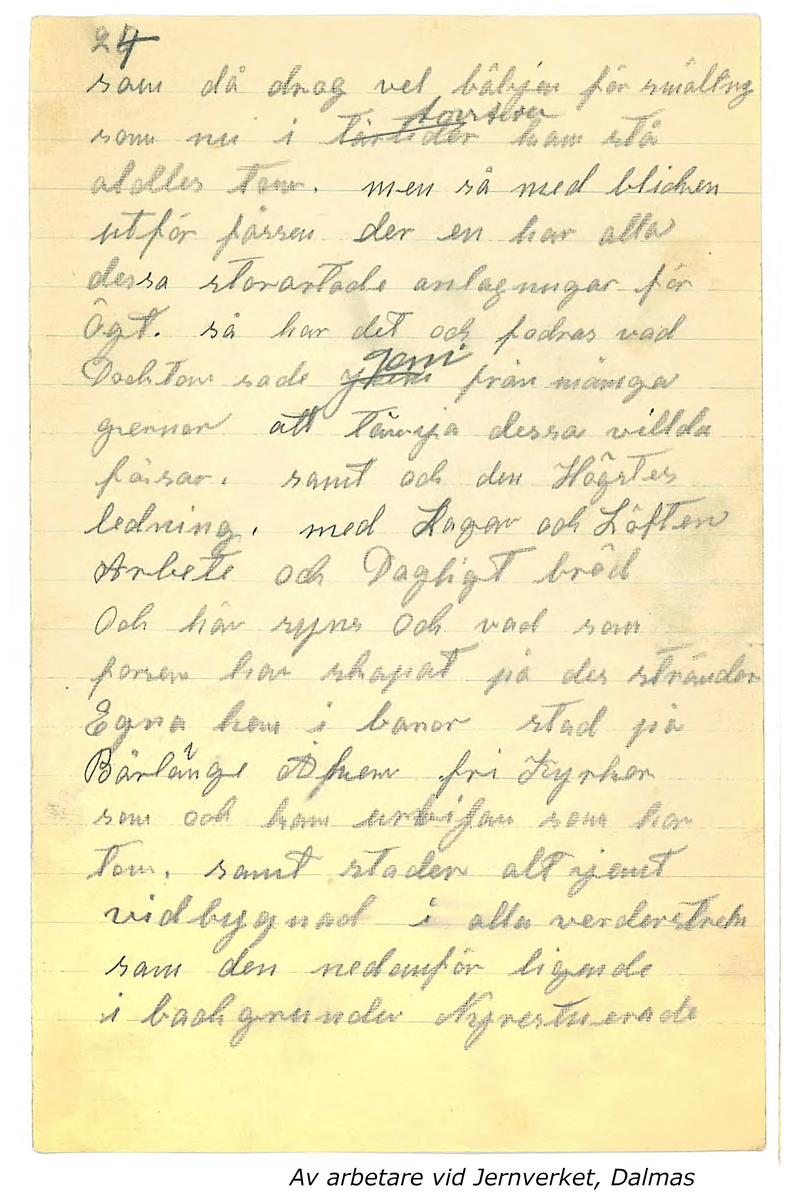 24
som då drog vel bäljen för smältng
som nu i torren kan stå
aldlles tom. men så med blicken
utför fårsen der en har alla
dessa storartade anlagnugar för
Ögt. så har det och fodras vad
Docktom sade Joni från många
grenar att tämja dessa villda
fårsar. samt och den Högstes
ledning. med Lagar och Löften
Arbete och Dagligt bröd
Och här syns Och vad som
forsen har skapat på des stränder
Egna hem i banor stad på
Bårlänge fri Kyrkor
som och kam som har
Tom. samt staden alt jemt
vidbygnad i alla verderstrek
som den nedomför ligende
i backgrunder Nyrestuerade
Av arbetare vid Jernverket, Dalmas